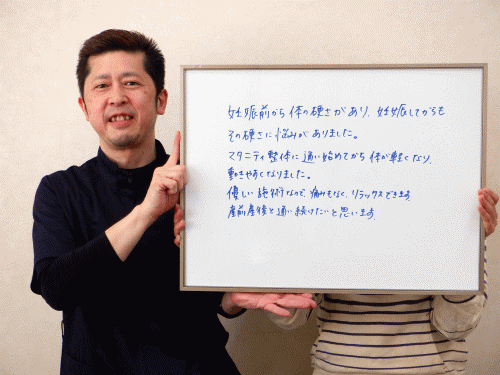 妊娠前から体の硬さがあり、妊娠してからも
その硬さに悩みがありました。
マタニティ整体に通い始めてから体が軽くなり、
動きやすくなりました。
優しい施術なので、痛みもなく、リラックスできます。
産前産後と通い続けたいと思います。